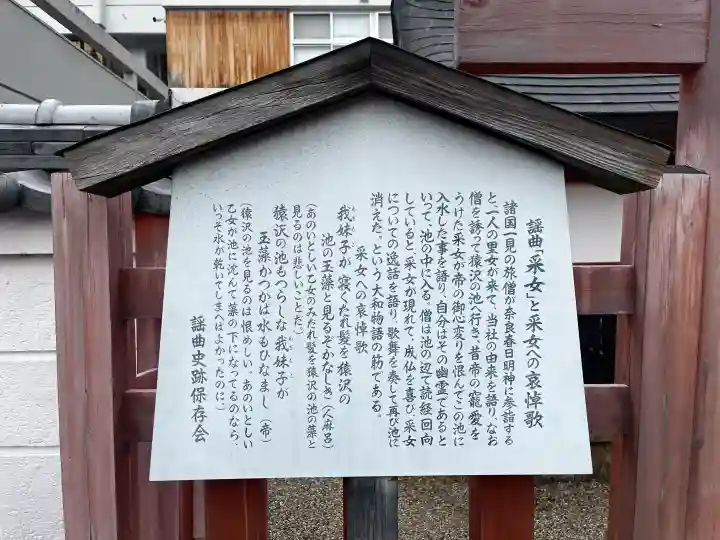 謡曲「采女」と采女への哀悼歌
諸国一見の旅僧が奈良春日明神に参詣する
と、一人の里女が来て、当社の由来を語り、なお
僧を誘って猿沢の池へ行き、昔帝の寵愛を
うけた采女が帝の御心変りを恨んでこの池に
入水した事を語り、自分はその幽霊であると
いって、池の中に入る。僧は池の辺で読経回向
していると、采女が現れて、成仏を喜び、采女
についての逸話を語り、歌舞を奏して再び池に
消えた、という大和物語の筋である。
采女への哀悼歌
我妹子が寝くたれ髪を猿沢の
池の玉藻と見るぞかなしき(人麻呂)
(あのいとしい乙女のみだれ髪を猿沢の池の藻と
見るのは悲しいことだ。)
猿沢の池もつらしな我妹子が
玉藻かつかば水もひなまし(帝)
(猿沢の池を見るのは恨めしい。あのいとしい
乙女が池に沈んで藻の下になってるのなら、
いっそ水が乾いてしまへばよかったのに。)
謡曲史跡保存会